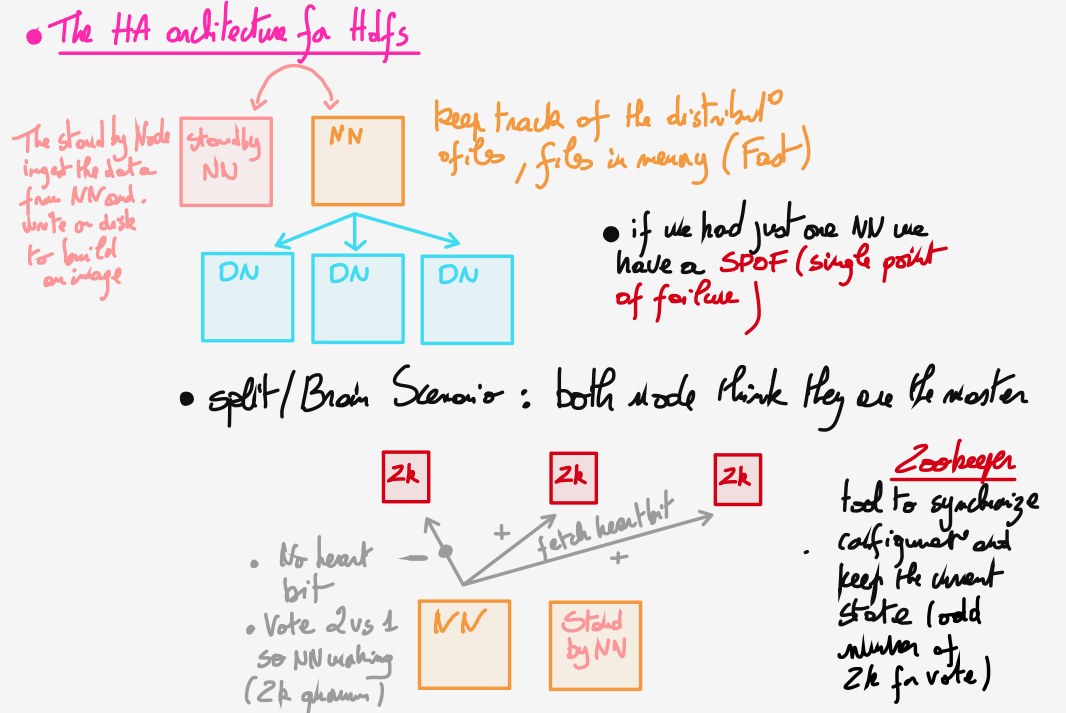 • The HA architecture for Hdfs
The stand by Node
ingest the data
from NN and.
write on disk
to build
an image
standby
NN
NN
keep track of the distribut°
of files, files in memory (Fast)
DN
DN
DN
• if we had just one NN we
have a SPOF (single point
of failure)
• split/Brain Scenario : both node think they are the master
Zk
Zk
Zk
fetch heartbit
+
+
-
• No heart
bit
• Vote 2 vs 1
so NN working
(Zk quorum)
NN
Stand
by NN
Zookeeper
tool to synchronize
configurat° and
keep the current
state (odd
number of
Zk for vote)